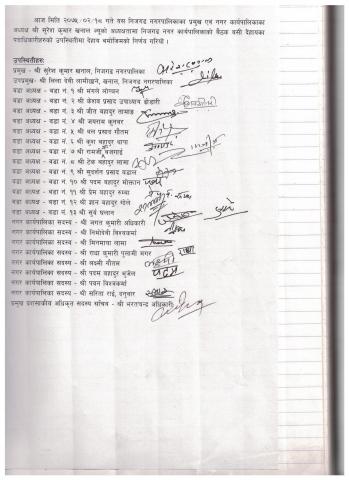 आज मिति २०७५।०९।१८ गते यस निजगढ नगरपालिकाका प्रमुख एवं नगर कार्यपालिकाका
अध्यक्ष श्री सुरेश कुमार खनाल ज्यूको अध्यक्षतामा निजगढ नगर कार्यपालिकाको बैठक बसी देहायका
पदाधिकारीहरुको उपस्थितीमा देहाय बमोजिमको निर्णय गरियो ।
उपस्थितीहरु:
प्रमुख - श्री सुरेश कुमार खनाल, निजगढ नगरपालिका
उपप्रमुख- श्री लिला देवी लामीछाने, खनाल, निजगढ नगरपालिका
वडा अध्यक्ष - वडा नं. १ श्री मंगले लोप्चन
वडा अध्यक्ष - वडा नं. २ श्री केशव प्रसाद उपाध्याय
वडा अध्यक्ष - वडा नं. ३ श्री जीत बहादुर तामाङ
वडा अध्यक्ष - वडा नं. ४ श्री जयराम कुवर
वडा अध्यक्ष - वडा नं. ५ श्री थल प्रसाद गौतम
वडा अध्यक्ष - वडा नं. ६ श्री कृष्ण बहादुर थापा
वडा अध्यक्ष - वडा नं. ७ श्री रामजी बजगाई
वडा अध्यक्ष - वडा नं. ८ श्री टेक बहादुर लामा
वडा अध्यक्ष - वडा नं. ९ श्री सुदर्शन प्रसाद
वडा अध्यक्ष - वडा नं. १० श्री पदम बहादुर मोक्तान
वडा अध्यक्ष - वडा नं. ११ श्री प्रेम बहादुर रुम्बा
वडा अध्यक्ष - वडा नं. १२ श्री ज्ञान बहादुर घोले
वडा अध्यक्ष - वडा नं. १३ श्री सुर्य
नगर कार्यपालिका सदस्य - श्री जगत कुमारी अधिकारी
नगर कार्यपालिका सदस्य - श्री विश्वकर्मा
नगर कार्यपालिका सदस्य - श्री मिनमाया लामा
नगर कार्यपालिका सदस्य - श्री राधा कुमारी पुलामी मगर
नगर कार्यपालिका सदस्य - श्री लक्ष्मी गौतम
नगर कार्यपालिका सदस्य - श्री पदम बहादुर भुजेल
नगर कार्यपालिका सदस्य - श्री पवन विश्वकर्मा
नगर कार्यपालिका सदस्य - श्री सरिता राई, दनुवार
प्रमुख प्रशासकीय अधिकृत सदस्य सचिव - श्री भरतचन्द्र अधिकारी